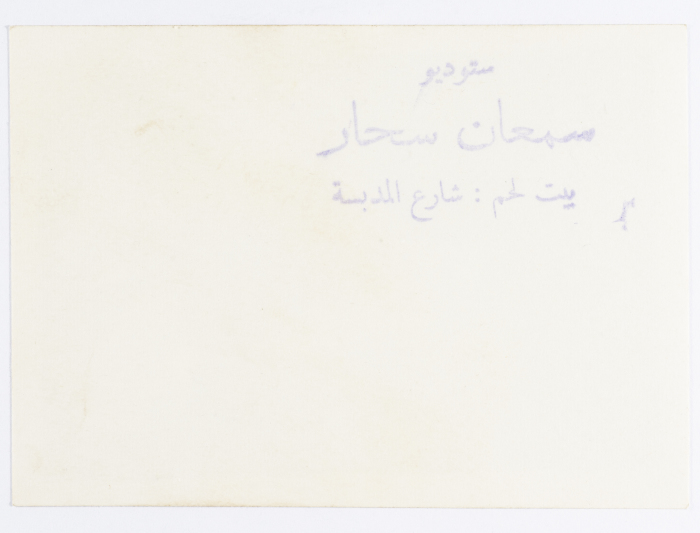 ستوديو
سمعان سحار
بيت لحم : شارع المدبسة